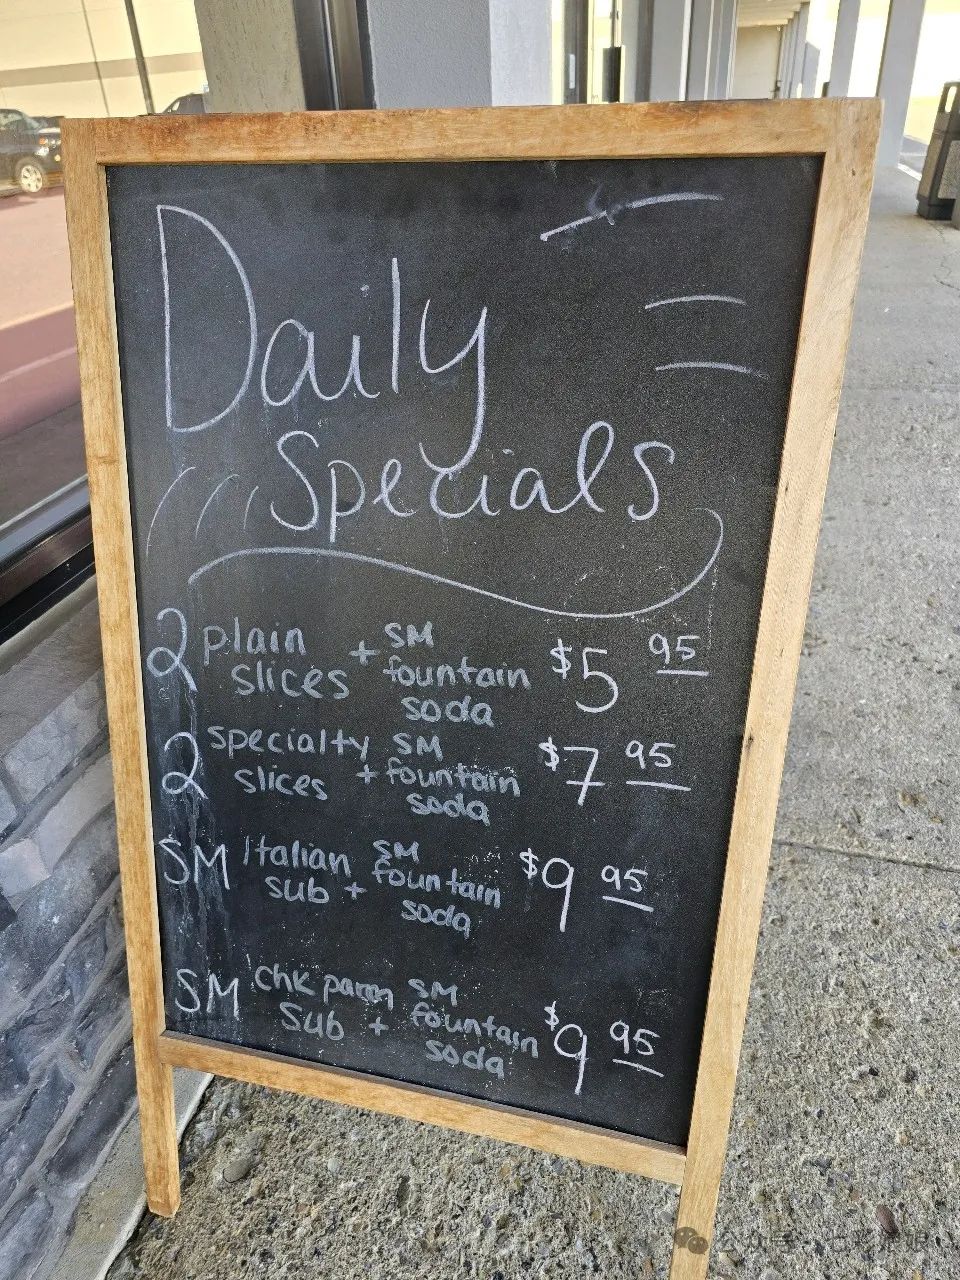 Daily
Specials
2 plain slices + SM fountain soda $5 95
2 specialty slices + SM fountain soda $7 95
SM Italian sub + SM fountain soda $9 95
SM Chk parm sub + SM fountain soda $9 95